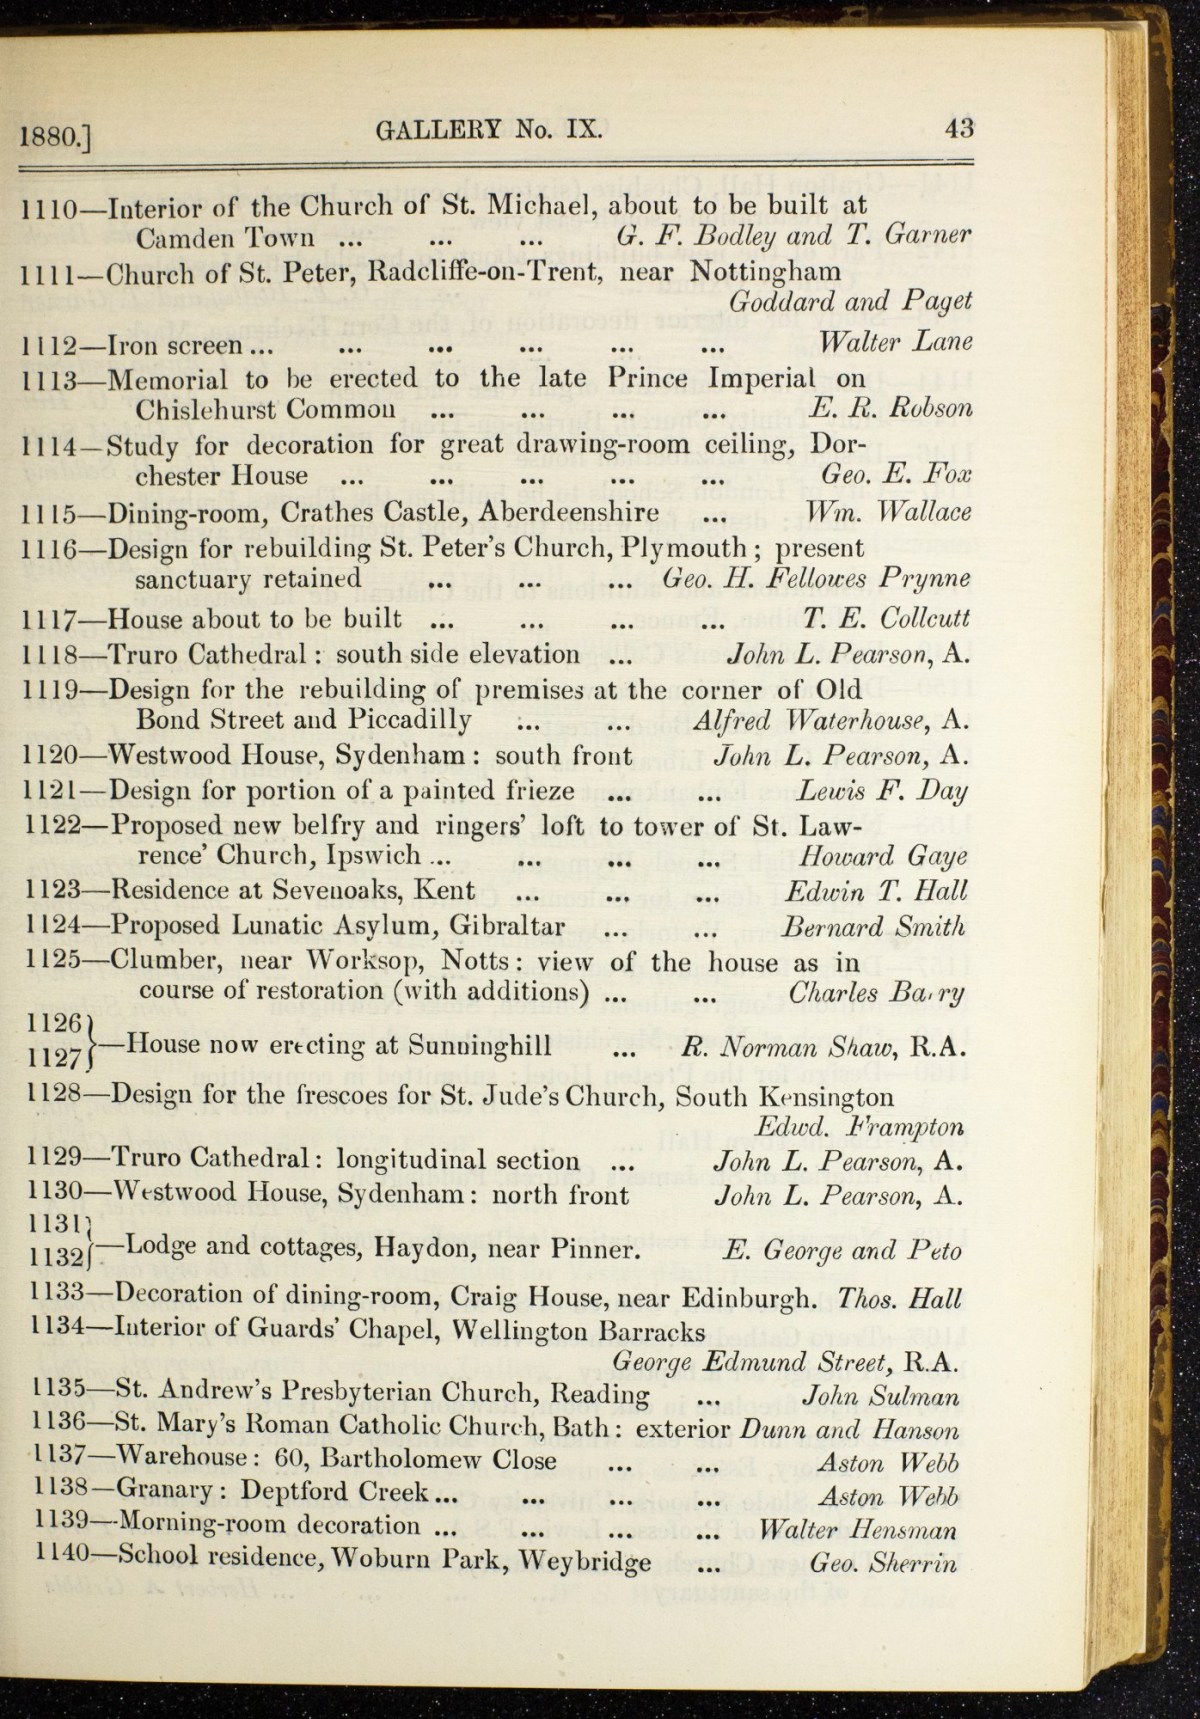 1880.] GALLERY No. IX. 43
1110—Interior of the Church of St. Michael, about to be built at
Camden Town ... ... ... G. F. Bodley and T. Garner
1111—Church of St. Peter, Radcliffe-on-Trent, near Nottingham
Goddard and Paget
1112—Iron screen ... ... ... ... ... ... Walter Lane
1113—Memorial to be erected to the late Prince Imperial on
Chislehurst Common ... ... ... ... E. R. Robson
1114—Study for decoration for great drawing-room ceiling, Dor-
chester House ... ... ... ... ... Geo. E. Fox
1115—Dining-room, Crathes Castle, Aberdeenshire ... Wm. Wallace
1116—Design for rebuilding St. Peter's Church, Plymouth; present
sanctuary retained ... ... ... Geo. H. Fellowes Prynne
1117—House about to be built ... ... ... ... T. E. Collcutt
1118—Truro Cathedral: south side elevation ... John L. Pearson, A.
1119—Design for the rebuilding of premises at the corner of Old
Bond Street and Piccadilly ... ... Alfred Waterhouse, A.
1120—Westwood House, Sydenham: south front John L. Pearson, A.
1121—Design for portion of a painted frieze ... ... Lewis F. Day
1122—Proposed new belfry and ringers' loft to tower of St. Law-
rence' Church, Ipswich ... ... ... ... Howard Gaye
1123—Residence at Sevenoaks, Kent ... ... ... Edwin T. Hall
1124—Proposed Lunatic Asylum, Gibraltar ... ... Bernard Smith
1125—Clumber, near Worksop, Notts: view of the house as in
course of restoration (with additions) ... ... Charles Barry
1126}
1127}—House now erecting at Sunninghill ... R. Norman Shaw, R.A.
1128—Design for the frescoes for St. Jude's Church, South Kensington
Edwd. Frampton
1129—Truro Cathedral: longitudinal section ... John L. Pearson, A.
1130—Westwood House, Sydenham: north front John L. Pearson, A.
1131}
1132}—Lodge and cottages, Haydon, near Pinner. E. George and Peto
1133—Decoration of dining-room, Craig House, near Edinburgh. Thos. Hall
1134—Interior of Guards' Chapel, Wellington Barracks
George Edmund Street, R.A.
1135—St. Andrew's Presbyterian Church, Reading ... John Sulman
1136—St. Mary's Roman Catholic Church, Bath: exterior Dunn and Hanson
1137—Warehouse: 60, Bartholomew Close ... ... Aston Webb
1138—Granary: Deptford Creek ... ... ... ... Aston Webb
1139—Morning-room decoration ... ... ... ... Walter Hensman
1140—School residence, Woburn Park, Weybridge ... Geo. Sherrin